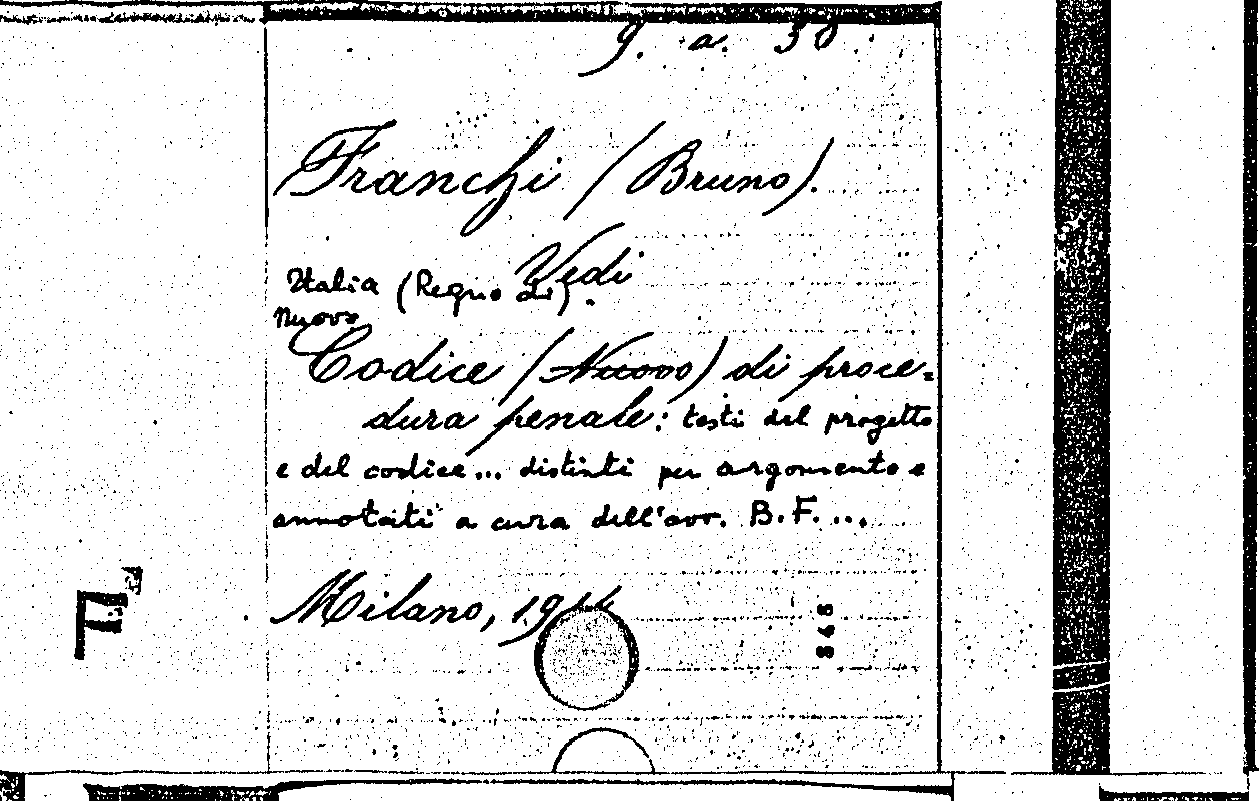 9. a. 38.
Franchi (Bruno).
Vedi
Italia (Regno di).
Nuovo
Codice (Nuovo) di proce-
dura penale: testi del progetto
e del codice... distinti per argomento e
annotati a cura dell'avv. B.F. ...
Milano,
F
845